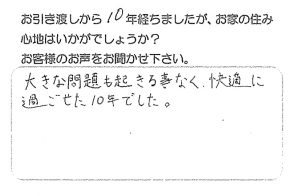 お引き渡しから10年経ちましたが、お家の住み
心地はいかがでしょうか?
お客様のお声をお聞かせ下さい。
大きな問題も起きる事なく、快適に
過ごせた10年でした。